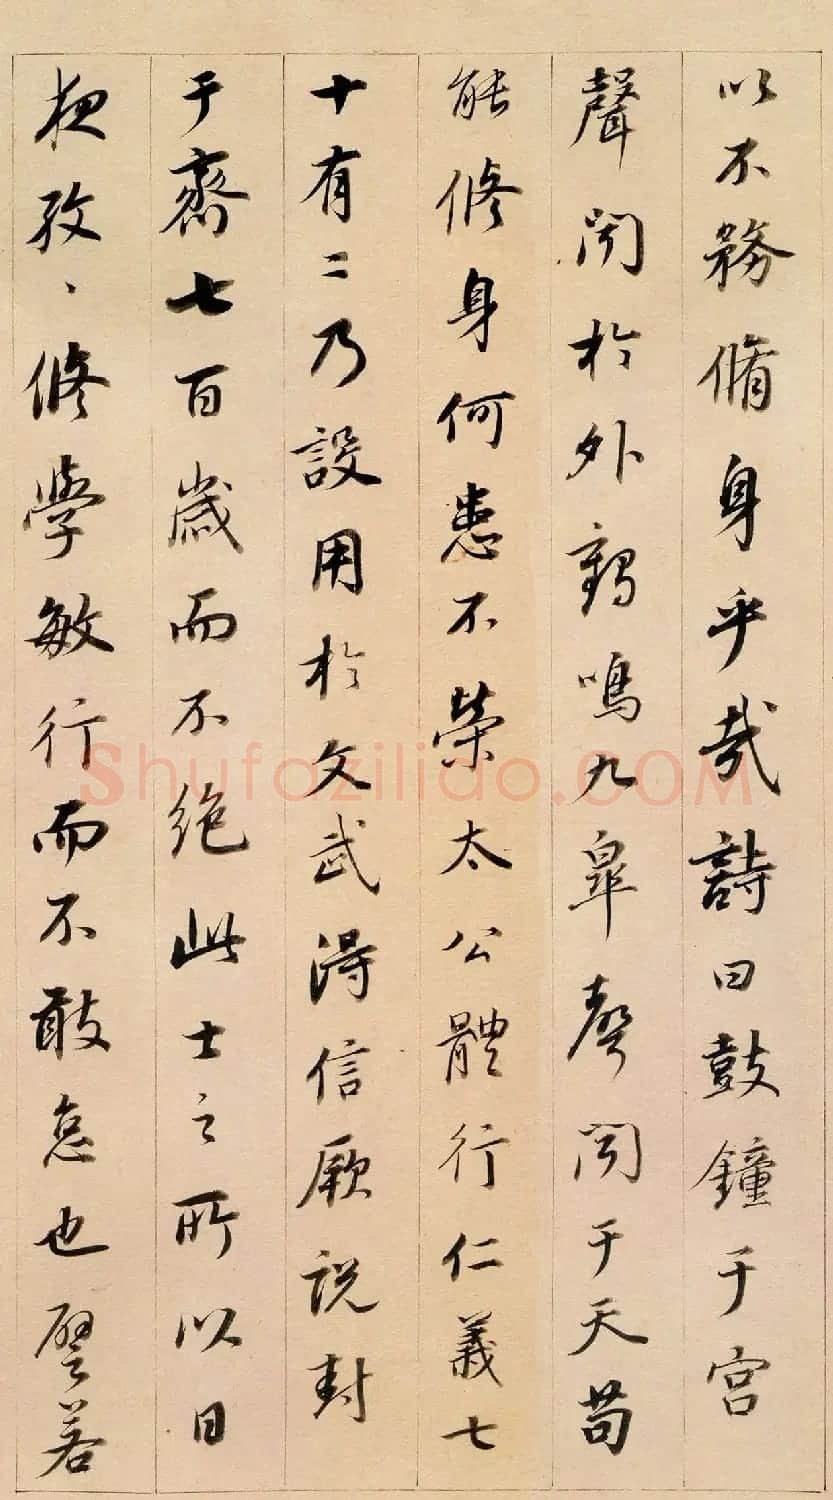 以不務脩身乎哉詩曰鼓鐘于宮
聲聞於外鶴鳴九皐聲聞于天苟
能修身何患不榮太公體行仁義七
十有二乃設用於文武得信厥説封
于齋七百歳而不絶此士之所以日
夜孜〻修學敏行而不敢怠也譬若
Shufazilido.COM